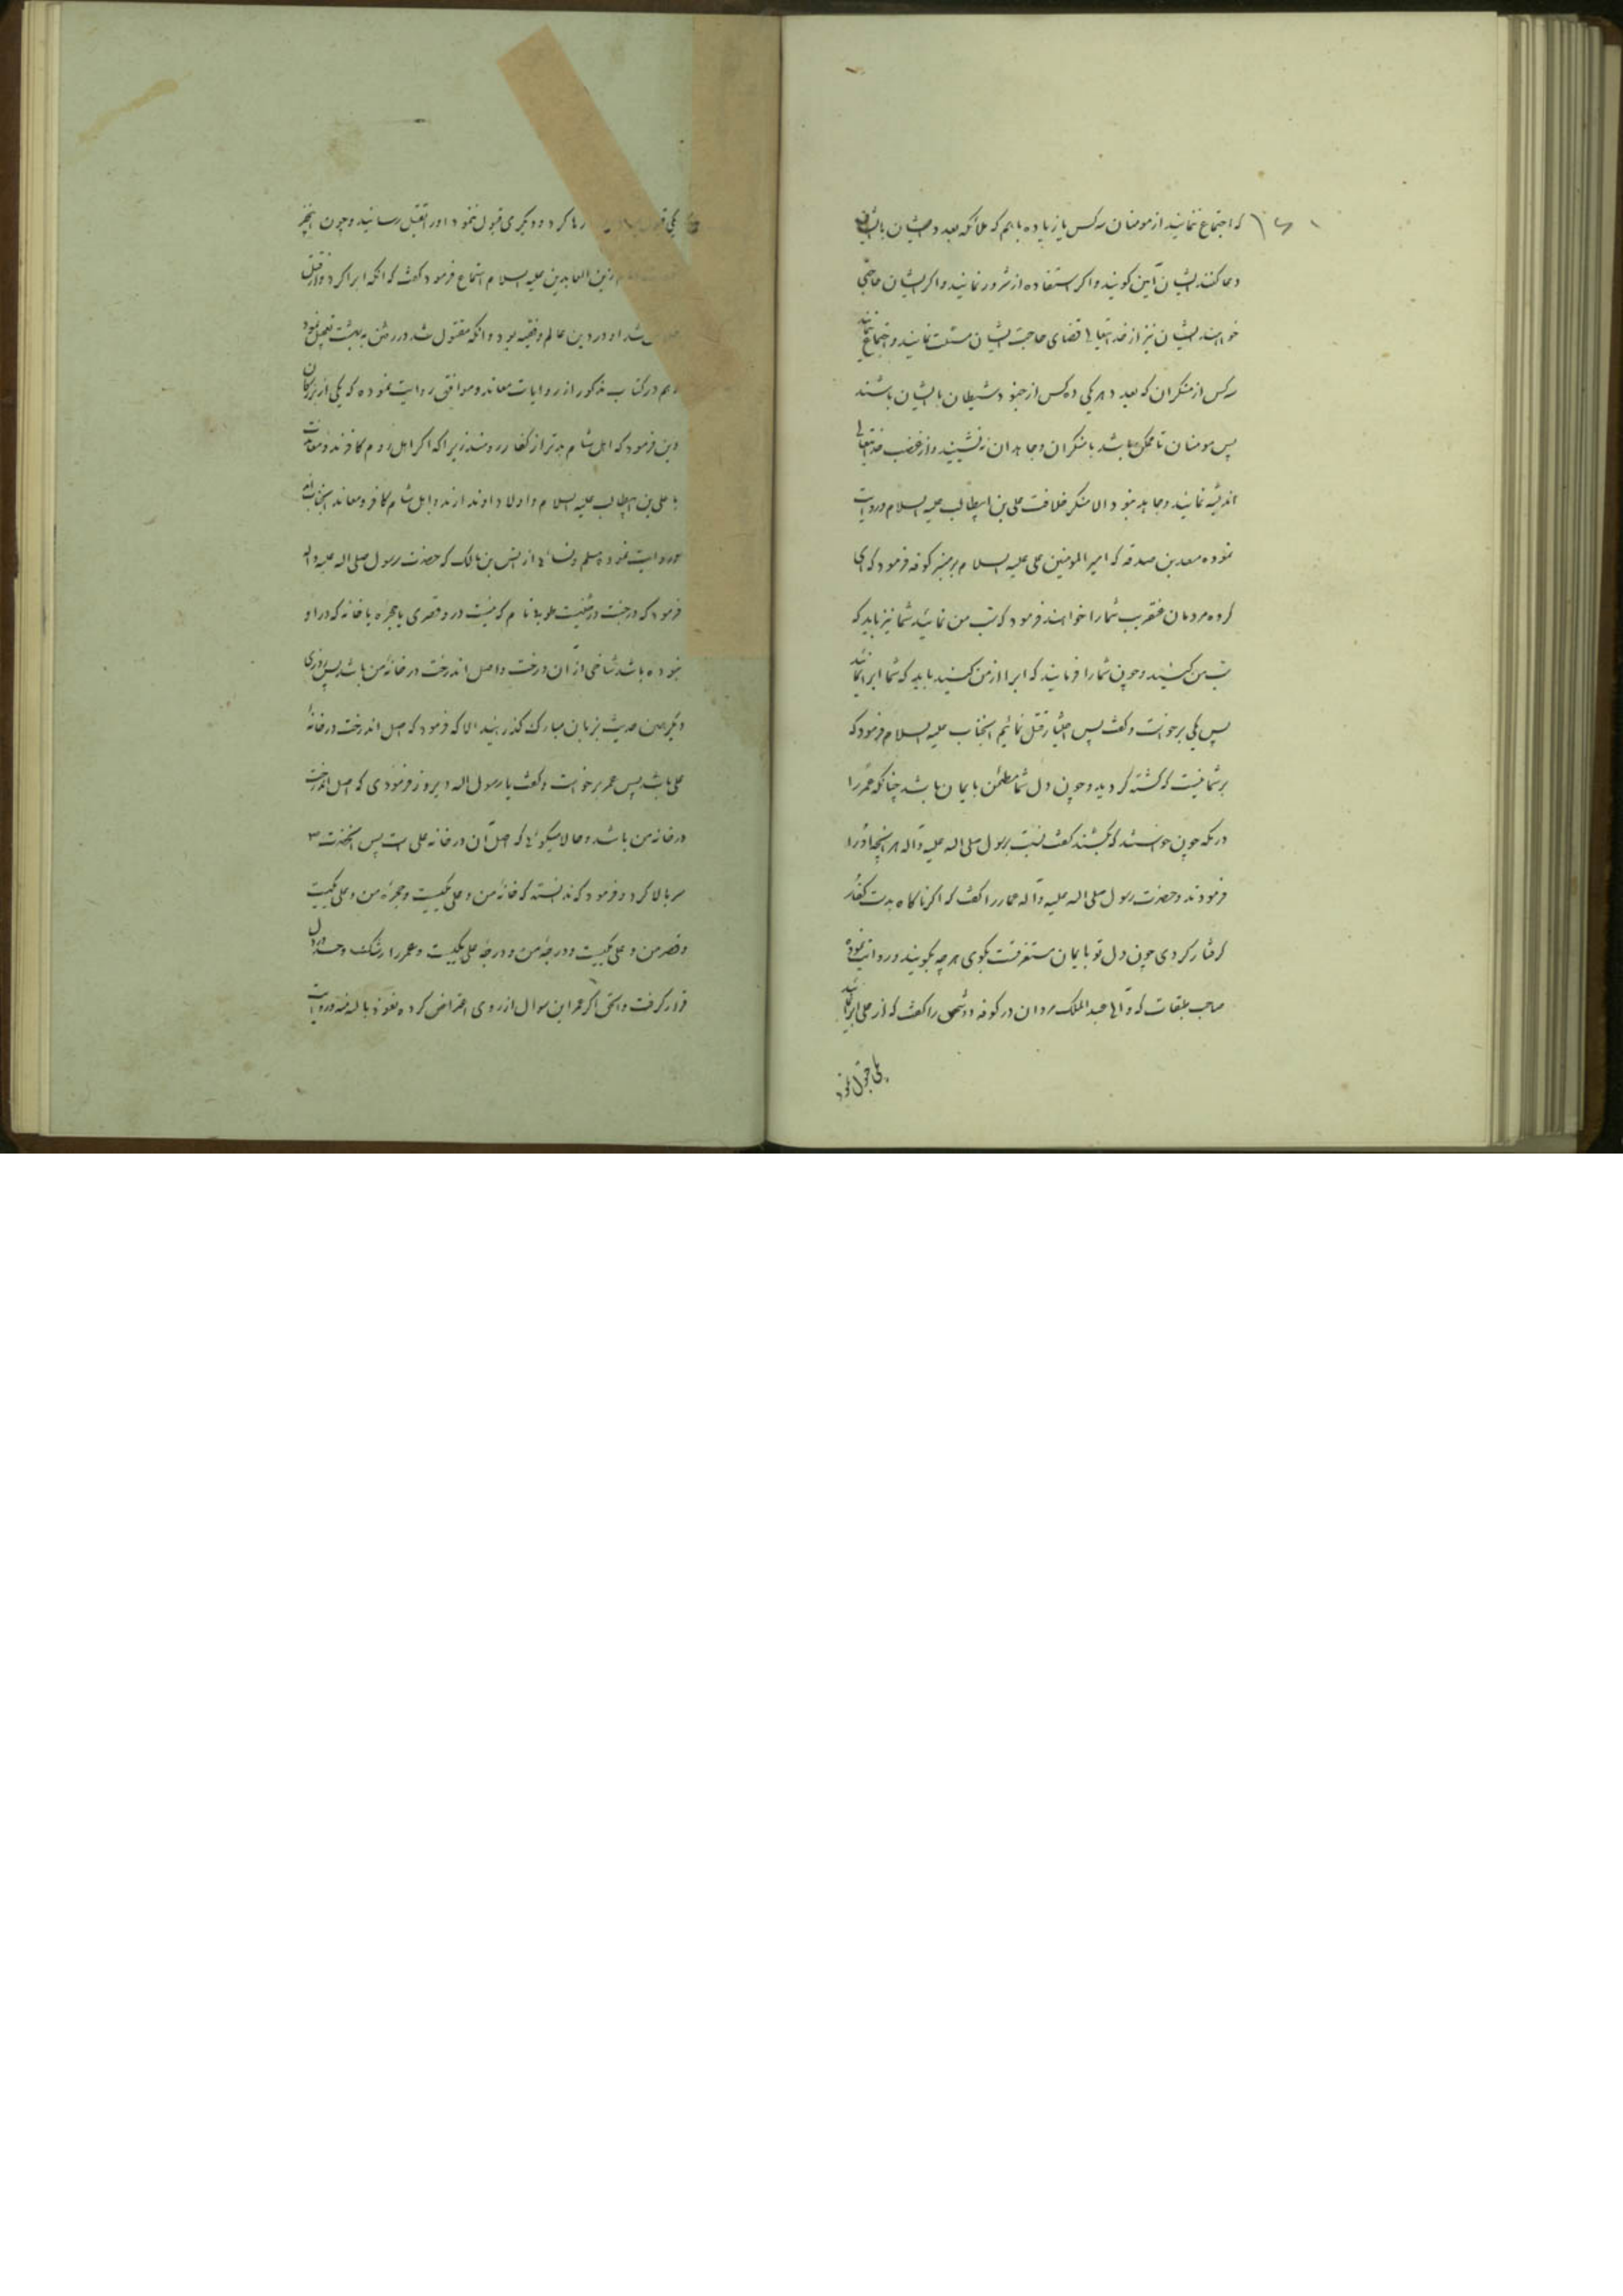 که اجتماع نمایند از مومنان سه کس یا زیاده باهم که ملائکه بعدد ایشان با ایشان
دعا کنند ایشان آمین گویند و اگر استعاذه از شرور نمایند و اگر ایشان حاجتی
خواهند ایشان نیز از خدایتعالی قضای حاجت ایشان مسئلت نمایند و اجتماع نمایند
سه کس از منکران که بعدد هر یکی ده کس از جنود شیطان با ایشان باشند
پس مومنان تا ممکن باشد با منکران و جاهدان ننشینند و از غضب خدایتعالی
اندیشه نمایند و جاهد نبود الا منکر خلافت علی بن ابیطالب علیه السلام و روایت
نموده مسعد بن صدقه که امیر المومنین علی علیه السلام بر منبر کوفه فرمود که ای
گروه مردمان عنقریب شما را خواهند فرمود که سب من نمائید شما نیز باید که
سب من کنید و چون شما را فرمایند که ابرا از من کنید باید که شما ابرا ننمائید
پس یکی برخواست و گفت پس اختیار قتل نمائیم انجناب علیه السلام فرمود که
بر شما نیست که کشته گردید و چون دل شما مطمئن بایمان باشد چنانکه عمار را
در مکه چون خواستند که بکشند گفت نسبت برسول صلی اله علیه و آله هر انچه او را
فرمودند و حضرت رسول صلی اله علیه و آله عمار را گفت که اگر ناگاه بدست کفار
گرفتار گردی چون دل تو بایمان مستغرقست بگوی هر چه بگویند و روایت نموده
صاحب طبقات که والی عبد الملک مروان در کوفه دو شخص را گفت که از علی ابرا نمائید
یکی قبول نمود
یکی قبول رها کرد و دیگری قبول ننمود او را بقتل رسانید و چون اینخبر
زین العابدین علیه السلام استماع فرمود گفت که انکه ابرا کرد و از قتل
شد او در دین عالم و فقیه بود و انکه مقتول شد در رفتن به بهشت تعجیل نمود
و هم در کتاب مذکور از روایات معاند و موافق روایت نموده که یکی از بزرگان
دین فرمود که اهل شام بدتر از کفار رومند زیرا که اگر اهل روم کافرند و معاندت
با علی بن ابیطالب علیه السلام و اولاد او ندارند و اهل شام کافر و معاند انجناب اند
و روایت نموده مسلم و نسائی از انس بن مالک که حضرت رسول صلی اله علیه و اله
فرمود که در جنت درختیست طوبه نام که نیست در و قصری یا حجره یا خانه که در او
نبوده باشد شاخی از آن درخت و اصل اندرخت در خانه من باشد پس روزی
دیگر همین حدیث بزبان مبارک گذرانید الا که فرمود که اصل اندرخت در خانه
علی باشد پس عمر برخواست و گفت یا رسول اله دیروز فرمودی که اصل اندرخت
در خانه من باشد و حالا میگوئی که اصل آن در خانه علی است پس انحضرت ص
سر بالا کرد و فرمود که ندانسته که خانه من و علی یکیست و حجره من و علی یکیست
و قصر من و علی یکیست و درجه من و درجه علی یکیست و عمر را رشک و حسد در دل
قرار گرفت و الحق اگر عمر این سوال از روی اعتراض کرده نعوذ باله منه و روایت